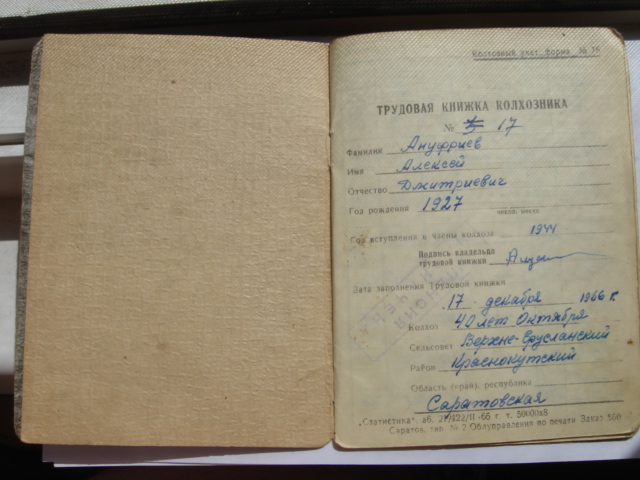 Колхозный учет. форма № 16
ТРУДОВАЯ КНИЖКА КОЛХОЗНИКА
№ 17
Фамилия Ануфриев
Имя Алексей
Отчество Дмитриевич
Год рождения 1927
число, число
Год вступления в члены колхоза 1944
Подпись владельца
трудовой книжки
Дата заполнения Трудовой книжки
17 декабря 1966 г.
Колхоз 40 лет Октября
Сельсовет Верхне-Ерусланский
Район Краснокутский
Область (край), республика
Саратовская
"Статистика", аб. т. 50000х8
Саратов, тип. № 2 Облуправления по печати Заказ 550